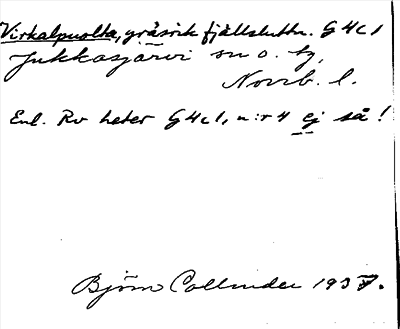 Virkalpuolta, gräsrik fjällslutn. G4c1
Jukkasjärvi sn o. tg,
Norrb. l.
Enl. Rv heter G4c1, n:r 4 ej så!
Björn Collinder 1937.